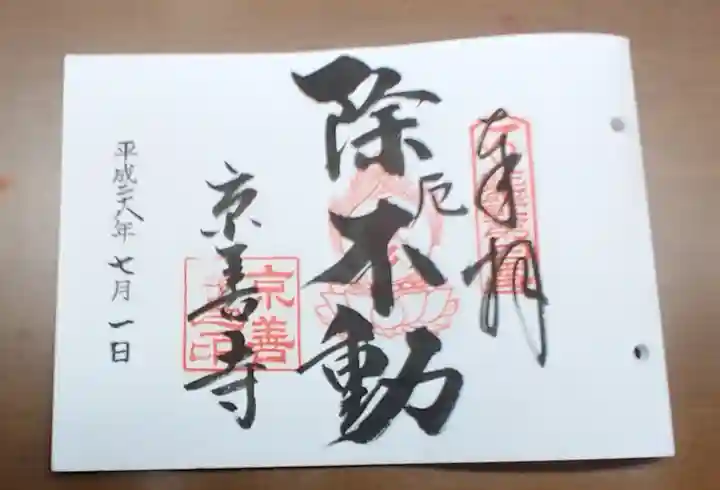 奉拝
除厄不動
京善寺
京善
之印
平成二十八年七月一日